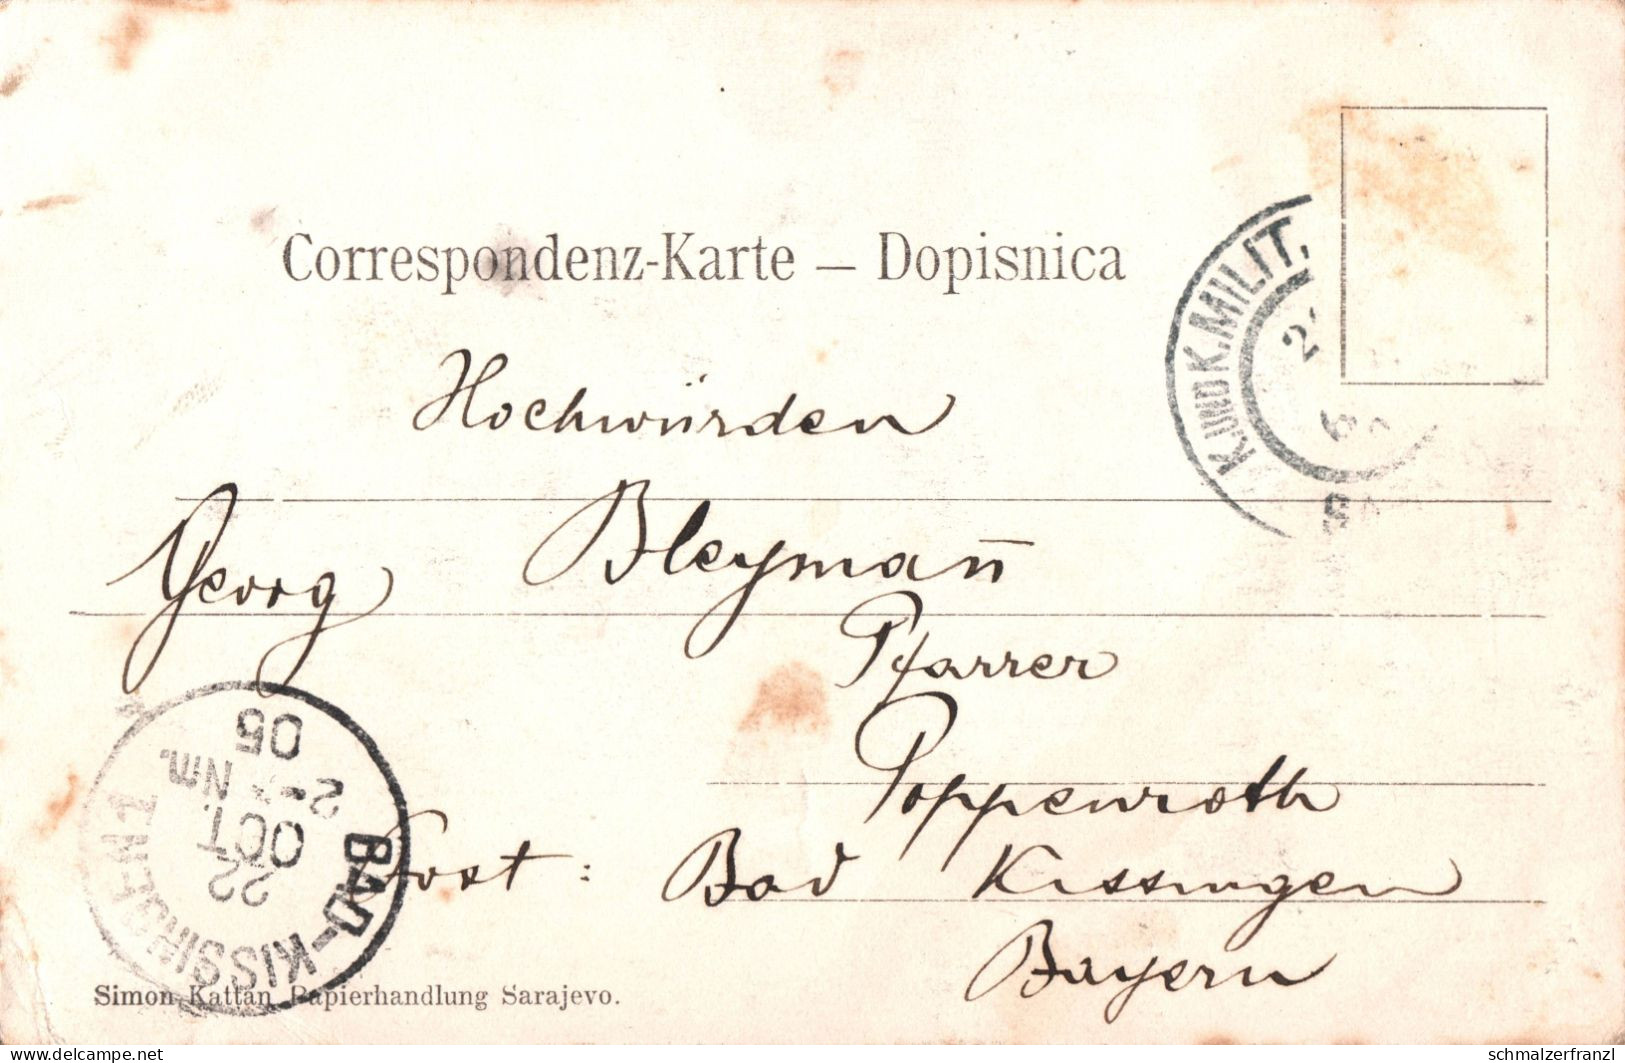 Correspondenz-Karte — Dopisnica
K. UND K. MILIT.
Hochwürden
Georg Bleyman̄
Pfarrer
Poppenroth
Post: Bad Kissingen
Bayern
BAD-KISSINGEN 1
22
OCT.
Nm.
05
Simon Kattan Papierhandlung Sarajevo.
www.delcampe.net
schmalzerfranzl